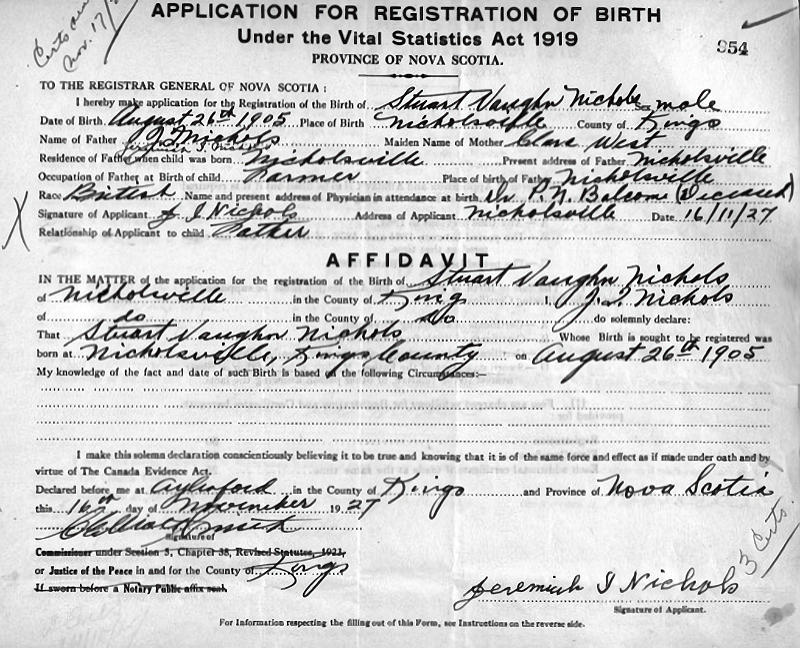 APPLICATION FOR REGISTRATION OF BIRTH
Under the Vital Statistics Act 1919
PROVINCE OF NOVA SCOTIA.
954
Nov. 17/
TO THE REGISTRAR GENERAL OF NOVA SCOTIA:
I hereby make application for the Registration of the Birth of Stuart Vaughn Nichols Sex male
Date of Birth. August 26th 1905 Place of Birth Nicholsville County of Kings
Name of Father J. I. Nichols Maiden Name of Mother Clara West
Residence of Father when child was born Nicholsville Present address of Father Nicholsville
Occupation of Father at Birth of child Farmer Place of birth of Father Nicholsville
Race British Name and present address of Physician in attendance at birth Dr P. N. Balcom (Deceased)
Signature of Applicant J I Nichols Address of Applicant Nicholsville Date 16/11/27
Relationship of Applicant to child Father
AFFIDAVIT
IN THE MATTER of the application for the registration of the Birth of Stuart Vaughn Nichols
of Nicholsville in the County of Kings I, J. I. Nichols
of do in the County of Do do solemnly declare:
That Stuart Vaughn Nichols Whose Birth is sought to be registered was
born at Nicholsville, Kings County on August 26th 1905
My knowledge of the fact and date of such Birth is based on the following Circumstances:—
I make this solemn declaration conscientiously believing it to be true and knowing that it is of the same force and effect as if made under oath and by
virtue of The Canada Evidence Act.
Declared before me at Aylesford in the County of Kings and Province of Nova Scotia
this 16th day of November 1927
Signature of
Commissioner under Section 3, Chapter 38, Revised Statutes, 1923,
or Justice of the Peace in and for the County of Kings
If sworn before a Notary Public affix seal.
3 Certs
Jeremiah I Nichols
Signature of Applicant.
For Information respecting the filling out of this Form, see Instructions on the reverse side.